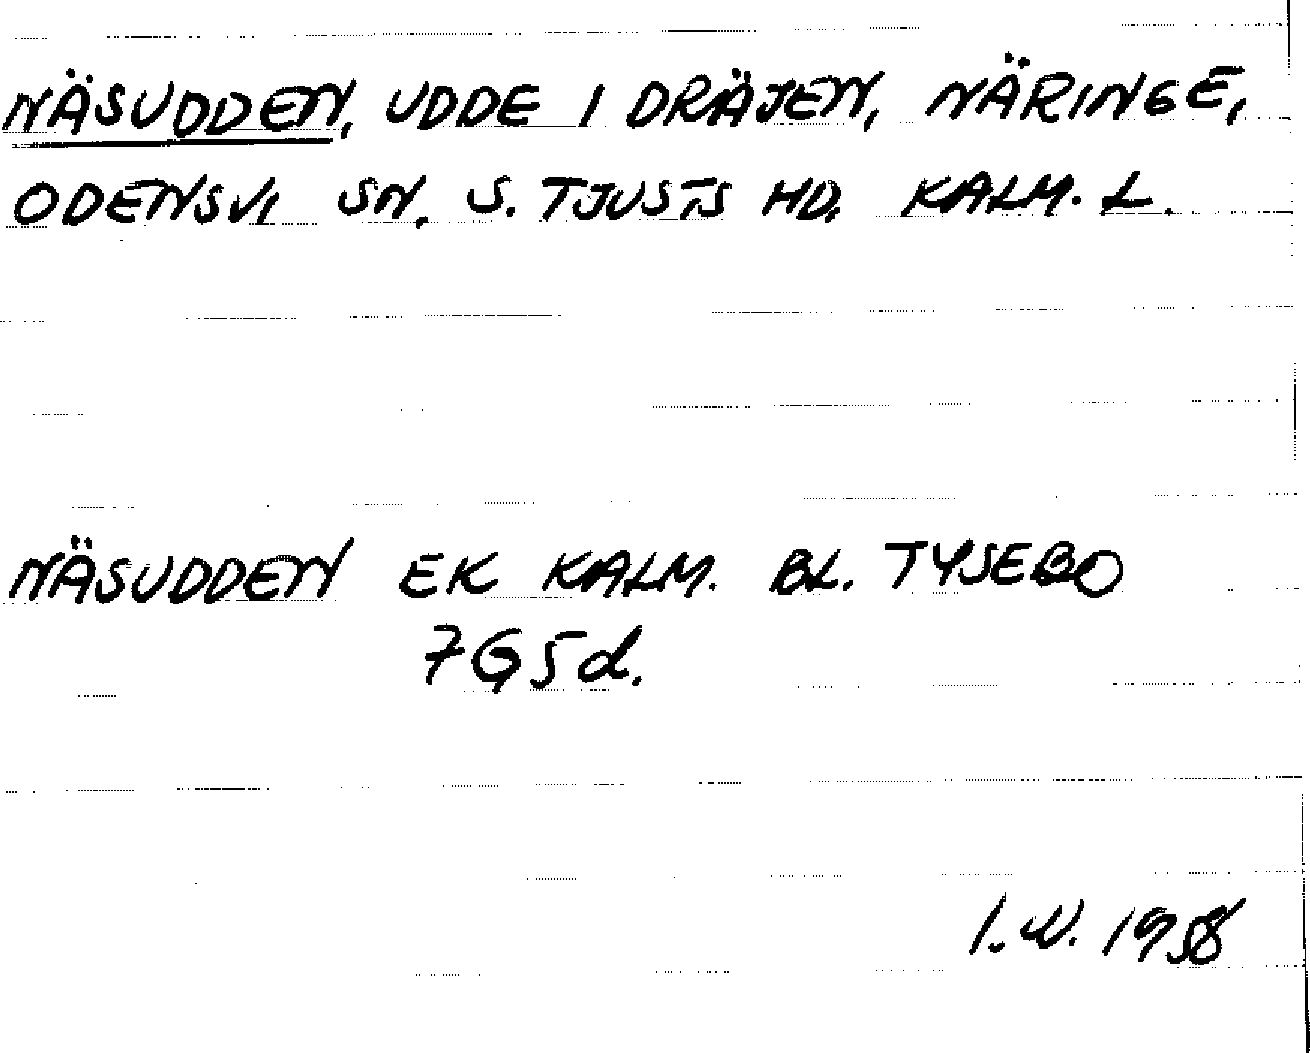 NÄSUDDEN, UDDE I DRÄJEN, NÄRINGE,
ODENSVI SN. S. TJUSTS HD. KALM. L.
NÄSUDDEN EK KALM. BL. TYSEBO
7G5d.
I.N. 1958